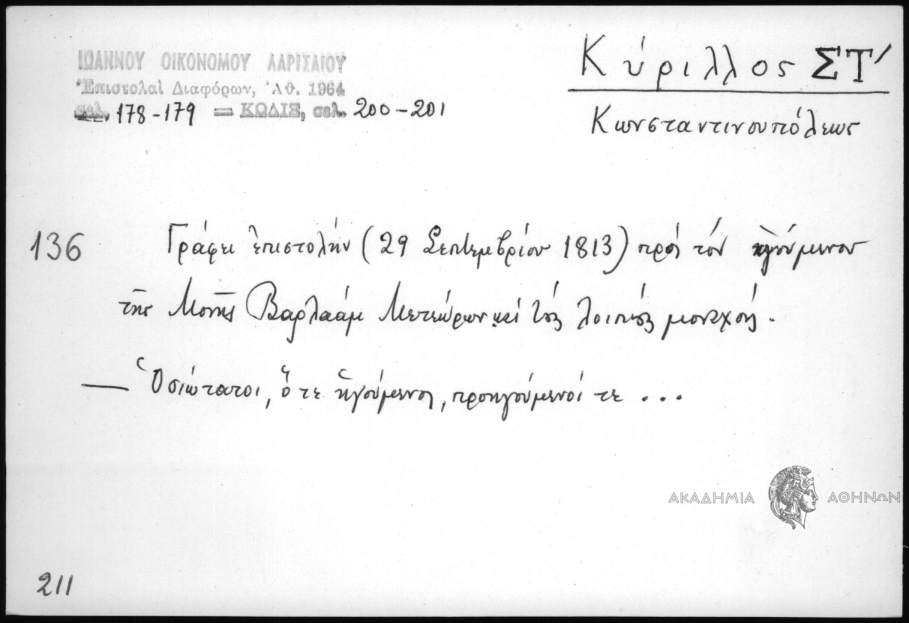 ΙΩΑΝΝΟΥ ΟΙΚΟΝΟΜΟΥ ΛΑΡΙΣΑΙΟΥ
Ἐπιστολαὶ Διαφόρων, Ἀθ. 1964
σελ. 178-179 = ΚΩΔΙΞ, σελ. 200-201
Κύριλλος ΣΤ΄
Κωνσταντινουπόλεως
136 Γράφει ἐπιστολήν (29 Σεπτεμβρίου 1813) πρὸς τὸν ἡγούμενον
τῆς Μονῆς Βαρλαάμ Μετεώρων καὶ τοὺς λοιποὺς μοναχούς.
— Ὁσιώτατοι, ὅ τε ἡγούμενος, προηγούμενοί τε ...
ΑΚΑΔΗΜΙΑ ΑΘΗΝΩΝ
211